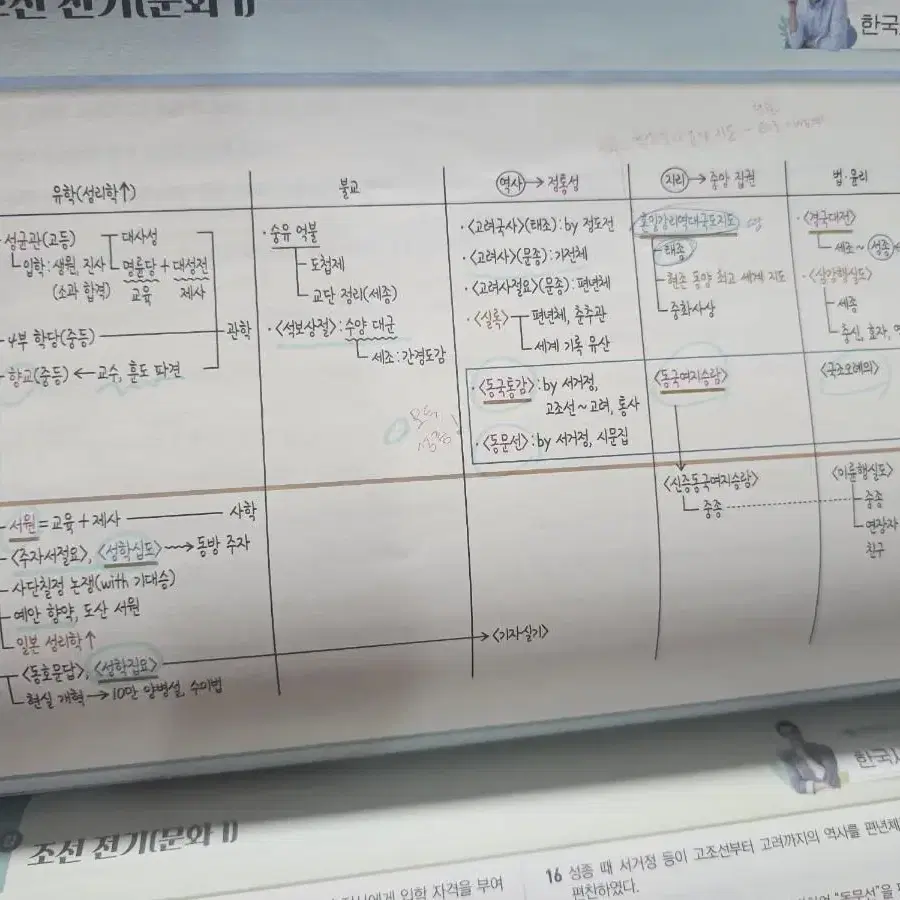 조선 전기(문화 1)
한국
유학(성리학↑)
· 성균관(고등)
대사성
입학: 생원, 진사
(소과 합격)
명륜당 + 대성전
교육 제사
4부 학당(중등)
향교(중등) ← 교수, 훈도 파견
관학
서원 = 교육 + 제사
사학
<주자서절요>, <성학십도> → 동방 주자
사단칠정 논쟁(with 기대승)
예안 향약, 도산 서원
일본 성리학↑
<동호문답>, <성학집요>
현실 개혁 → 10만 양병설, 수미법
불교
· 숭유 억불
도첩제
교단 정리(세종)
· <석보상절>: 수양 대군
세조: 간경도감
역사 → 정통성
· <고려국사>(태조): by 정도전
· <고려사>(문종): 기전체
· <고려사절요>(문종): 편년체
· <실록>
편년체, 춘추관
세계 기록 유산
· <동국통감>: by 서거정,
고조선~고려, 통사
· <동문선>: by 서거정, 시문집
<기자실기>
지리 → 중앙 집권
혼일강리역대국도지도
태종
현존 동양 최고 세계 지도
중화사상
<동국여지승람>
<신증동국여지승람>
중종
법·윤리
· <경국대전>
세조~성종
· <삼강행실도>
세종
충신, 효자,
<국조오례의>
<이륜행실도>
중종
연장자
친구
한국사
조선 전기(문화 1)
입학 자격을 부여
16 성종 때 서거정 등이 고조선부터 고려까지의 역사를 편년체
편찬하였다.
"동문선"을